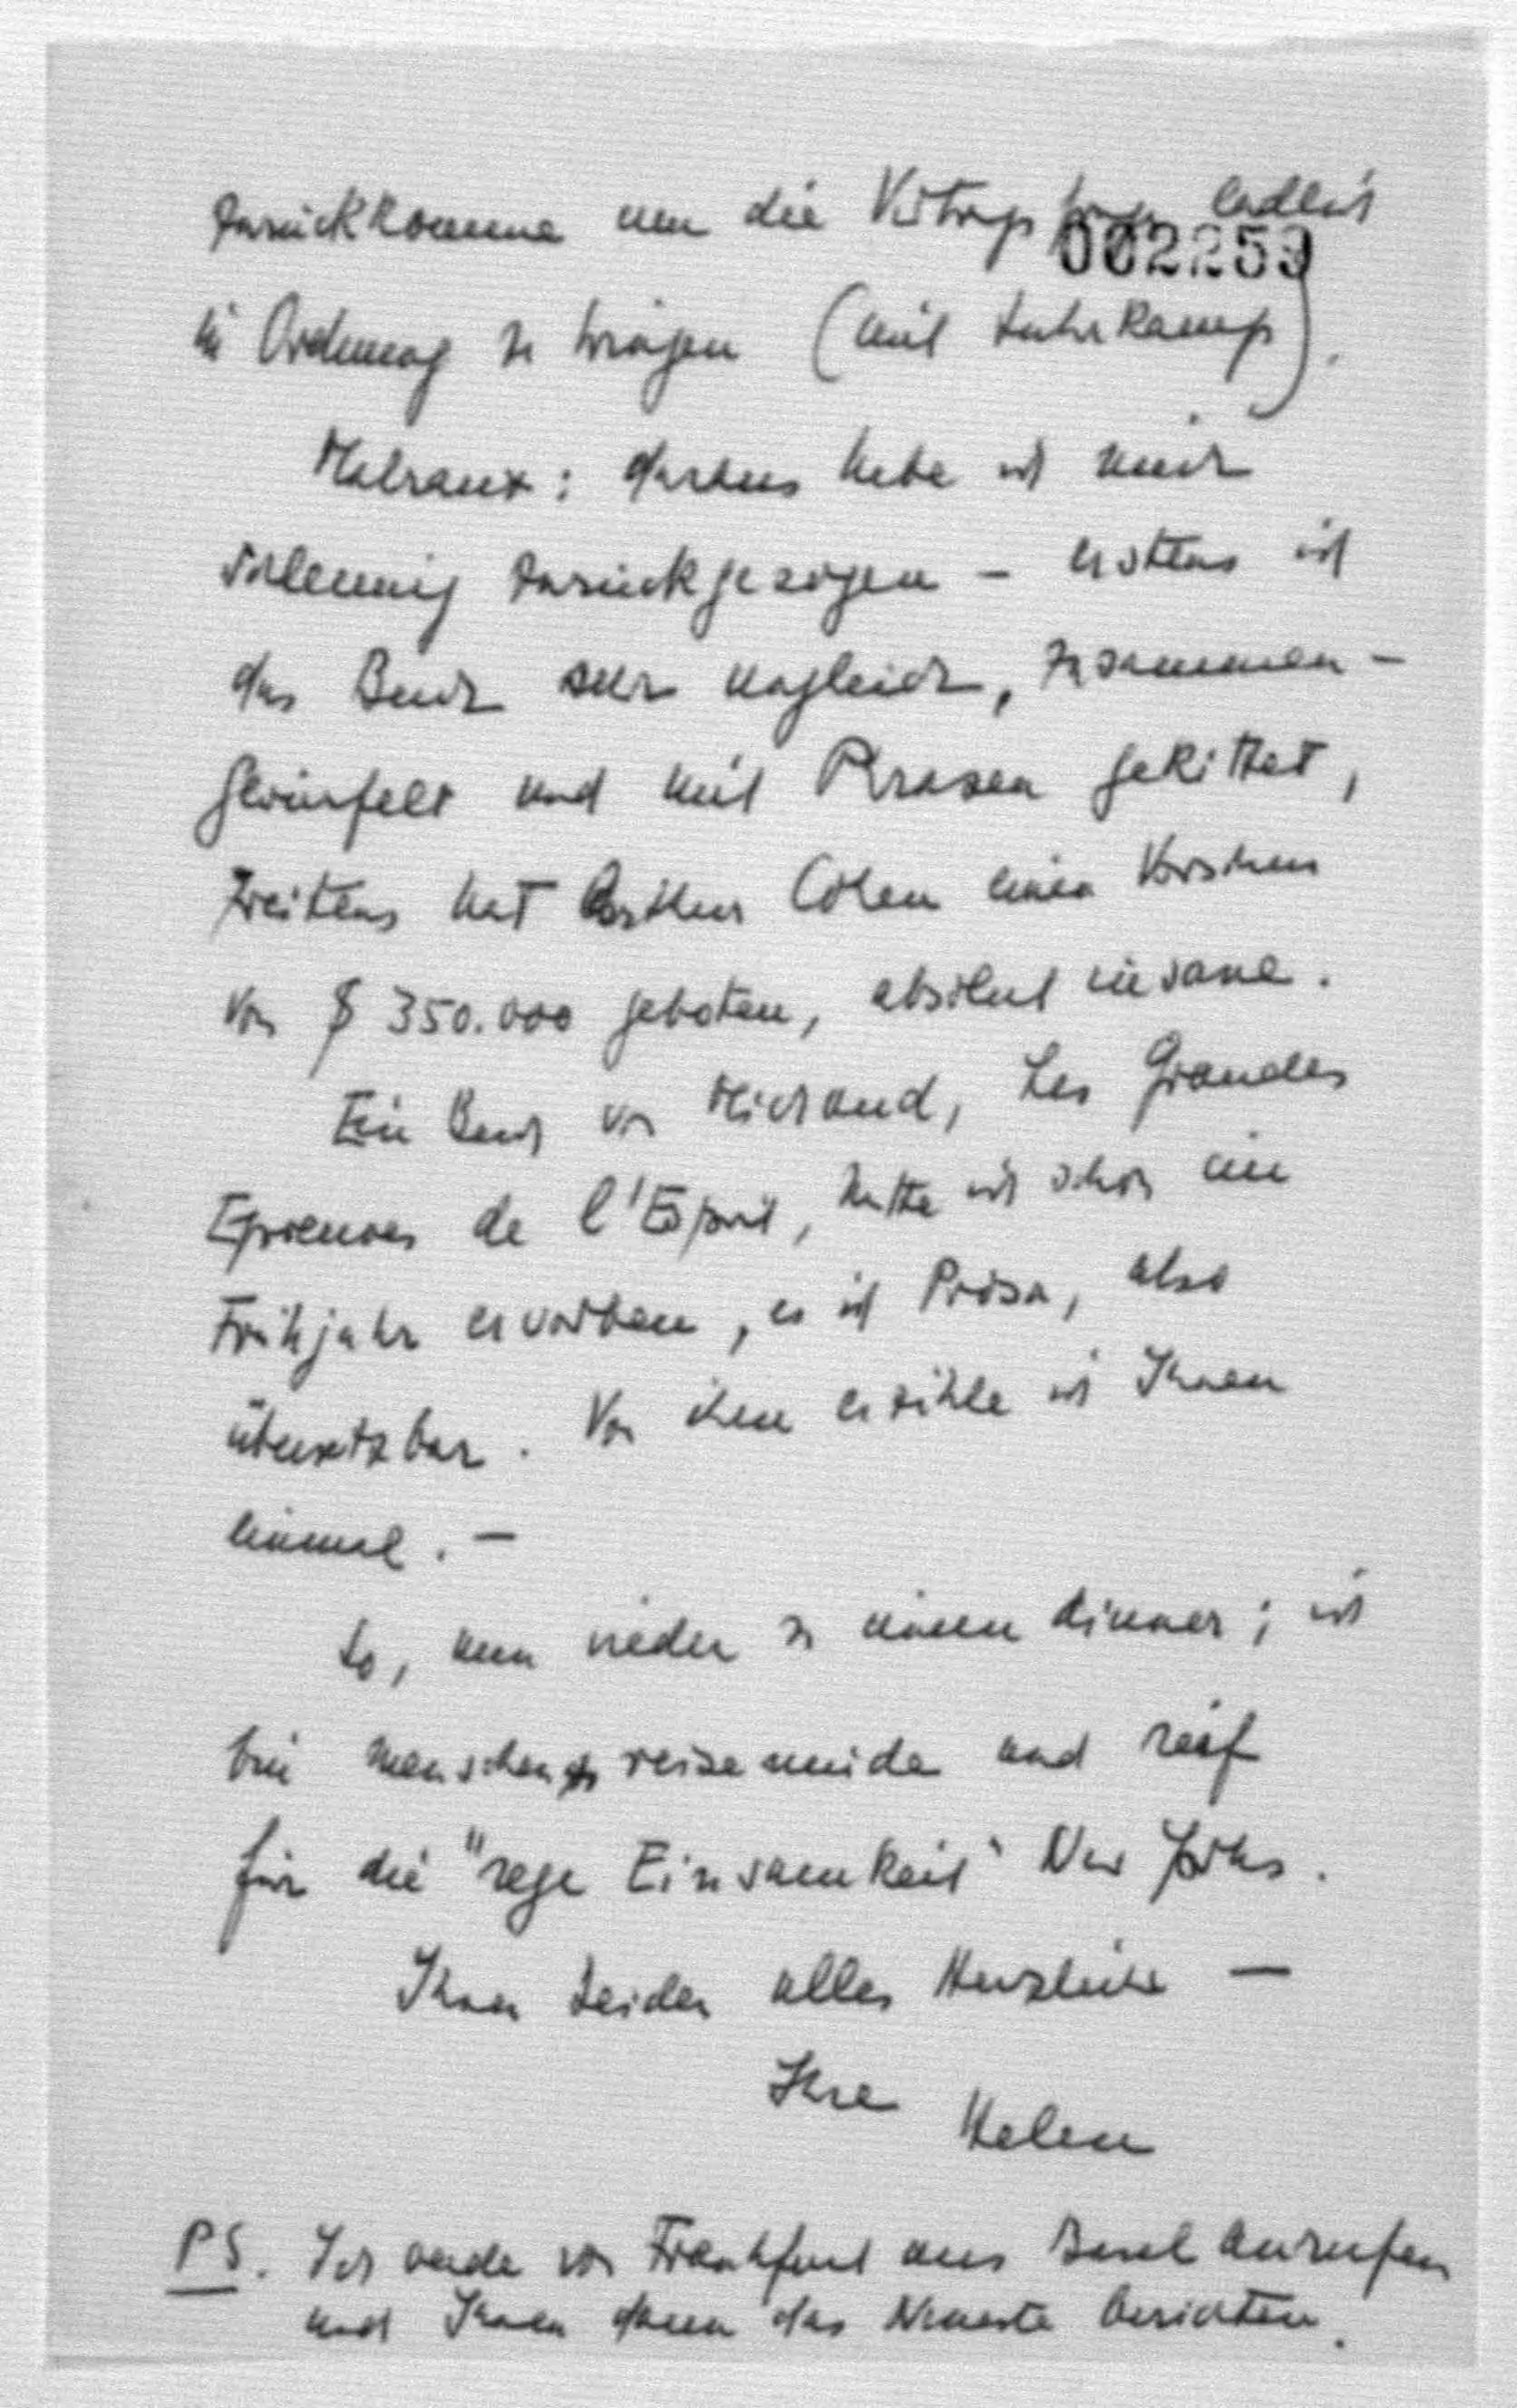 zurückkomme um die Vertragsfrage endlich
002253
in Ordnung zu bringen (mit Suhrkamp).
Malraux: daraus habe ich mich
schleunig zurückgezogen – erstens ist
das Buch sehr ungleich, zusammen-
gewürfelt und mit Phrasen gekittet,
zweitens hat Arthur Cohen einen Vorschuss
von $ 350.000 geboten, absolut insane.
Ein Buch von Michaud, Les Grandes
Epreuves de l'Esprit, hatte ich schon im
Frühjahr erworben, es ist Prosa, also
übersetzbar. Von ihm erzähle ich Ihnen
einmal. –
So, nun wieder zu einem dinner; ich
bin menschen reisemüde und reif
für die "rege Einsamkeit" New Yorks.
Ihnen beiden alles Herzliche –
Ihre Helen
PS. Ich werde von Frankfurt aus Basel anrufen
und Ihnen dann das Neueste berichten.